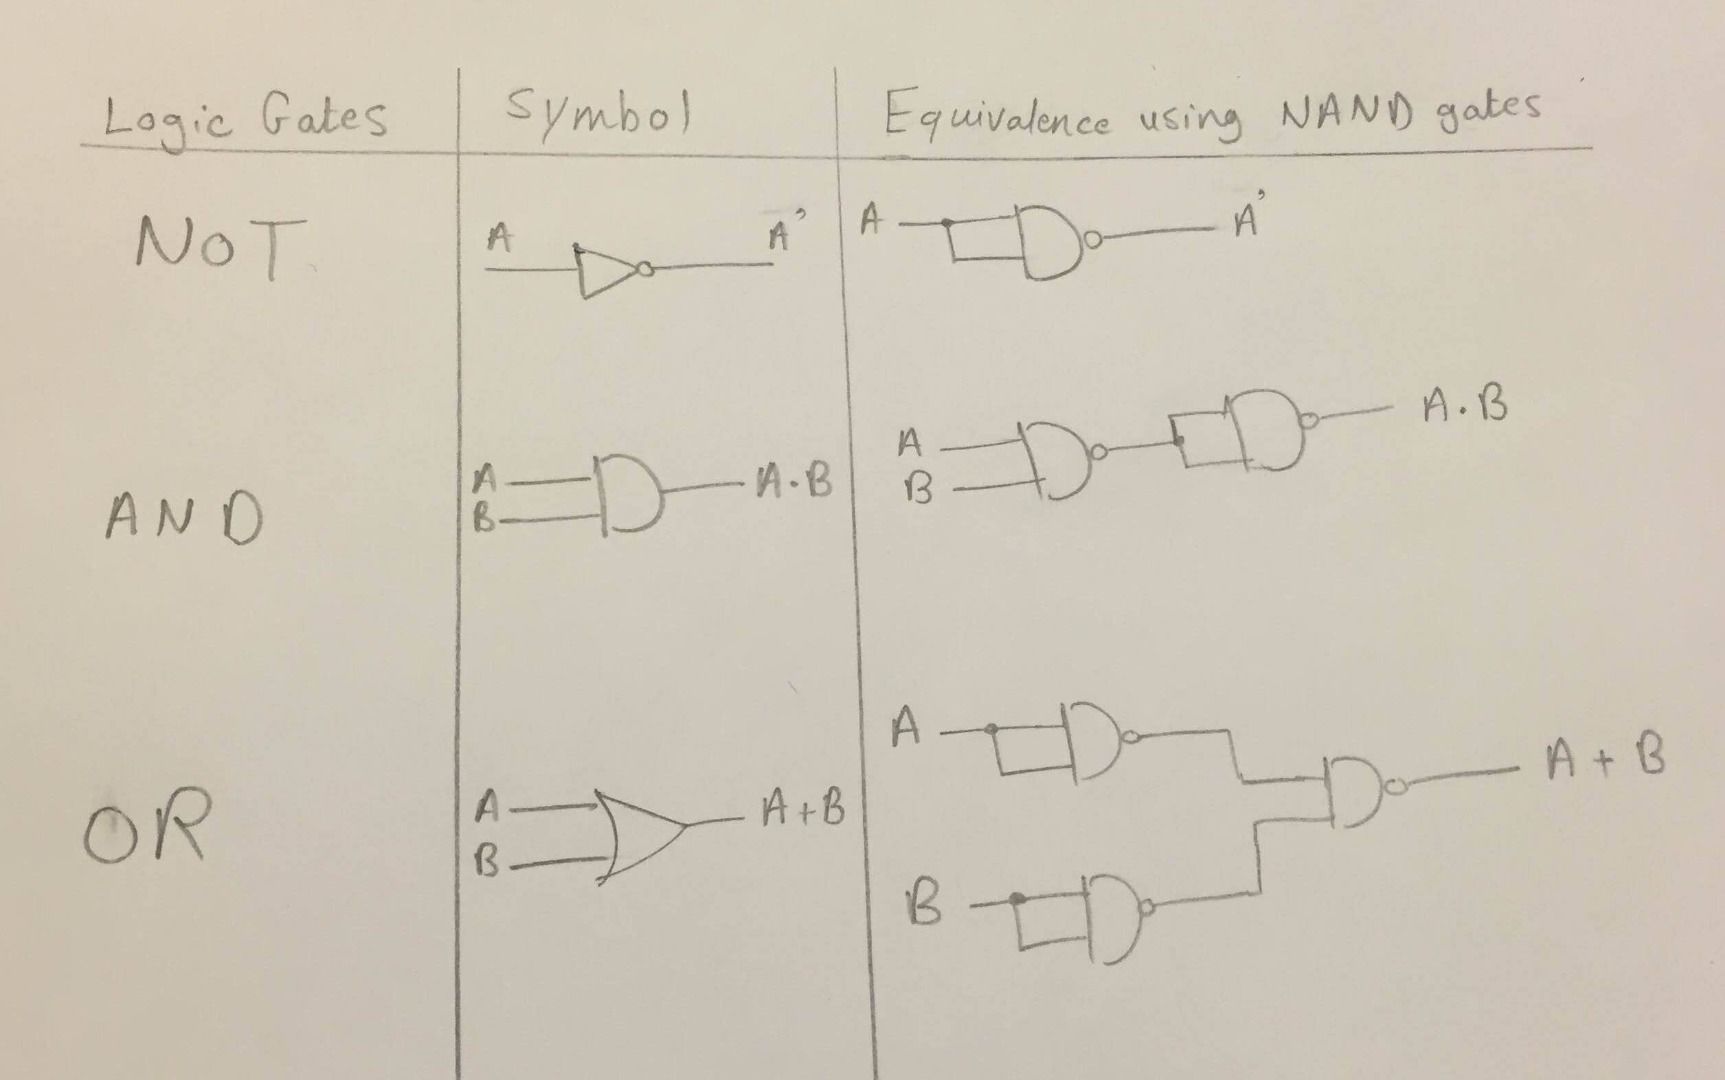 Logic Gates Symbol Equivalence using NAND gates
NOT A A' A A'
AND A B A.B A B A.B
OR A B A+B A B A + B